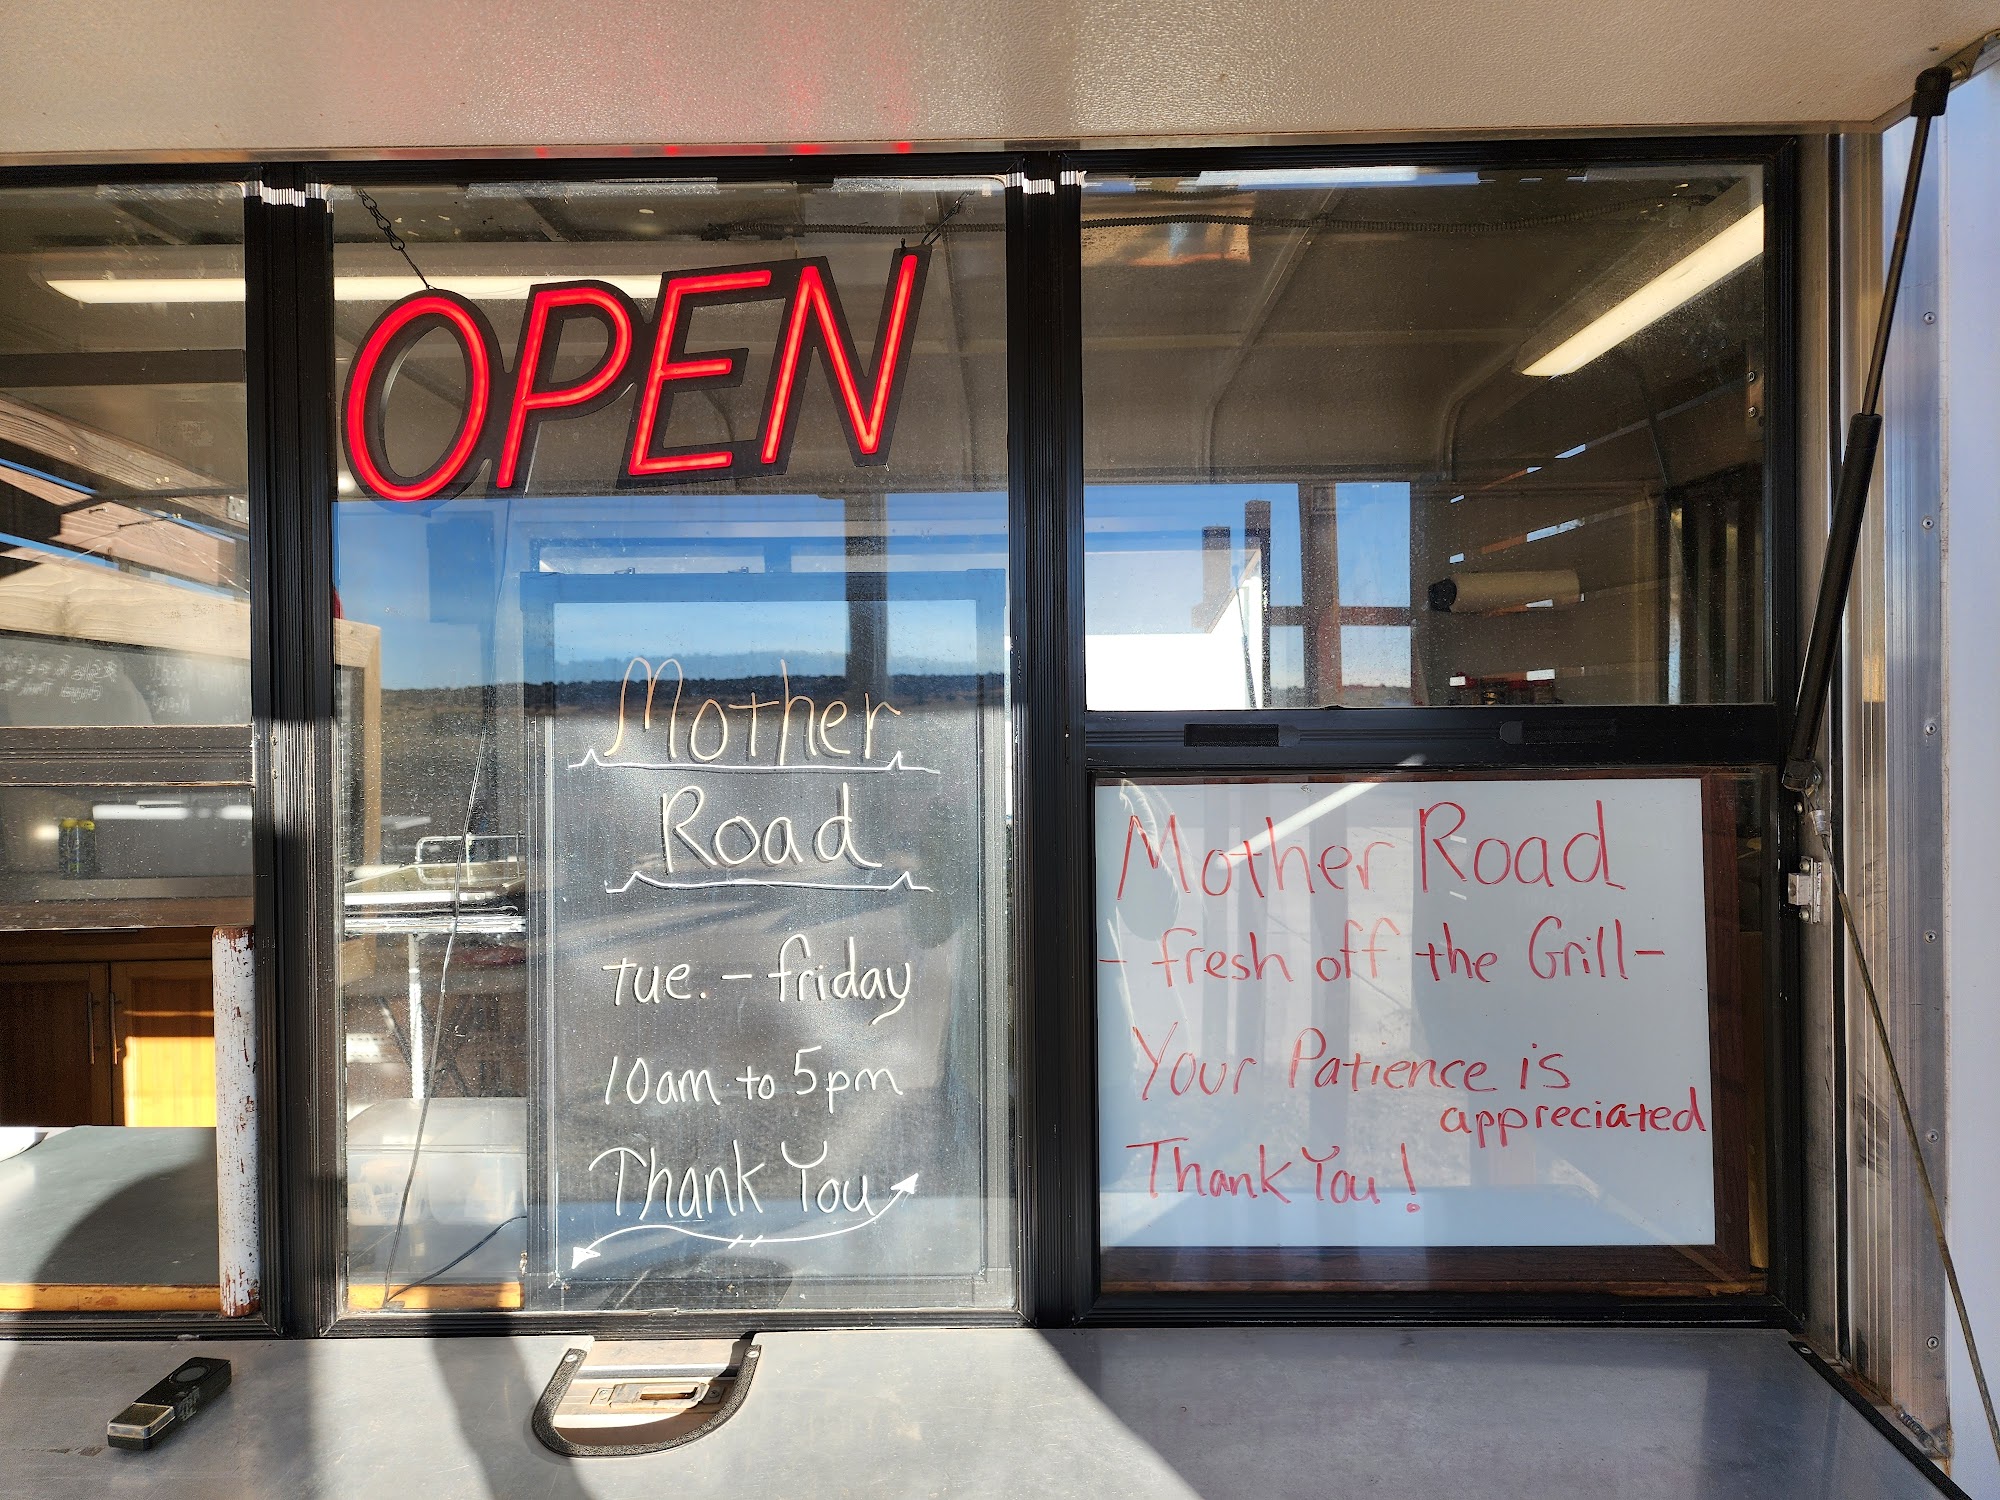 OPEN
Mother
Road
tue. - friday
10am to 5pm
Thank You
Mother Road
- fresh off the Grill -
Your Patience is
appreciated
Thank You!